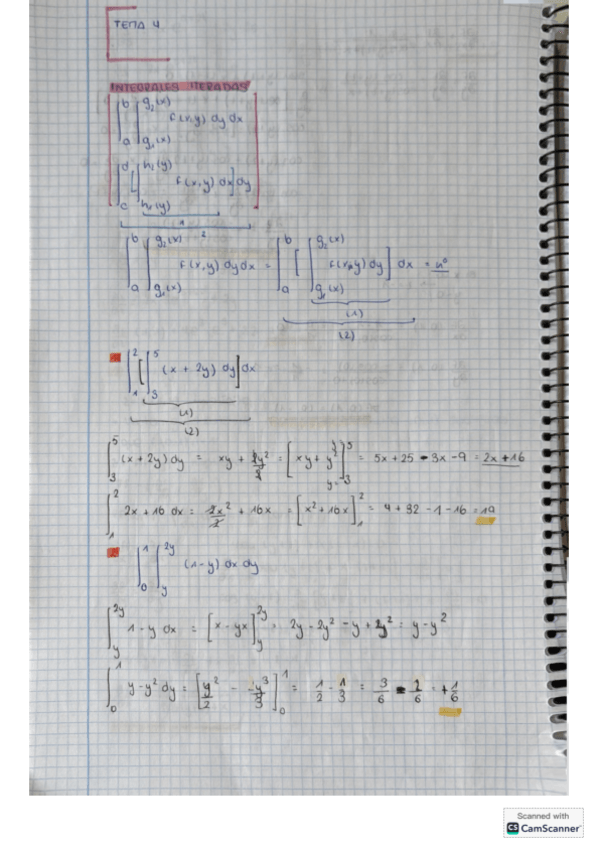 TEMA 4.
INTEGRALES ITERADAS
∫_a^b ∫_{g₁(x)}^{g₂(x)} f(x,y) dy dx
∫_c^d [∫_{h₁(y)}^{h₂(y)} f(x,y) dx] dy
1
2
∫_a^b ∫_{g₁(x)}^{g₂(x)} f(x,y) dy dx = ∫_a^b [∫_{g₁(x)}^{g₂(x)} f(x,y) dy] dx = nº
(1)
(2)
1 ∫_1^2 [∫_3^5 (x + 2y) dy] dx
(1)
(2)
∫_3^5 (x + 2y) dy = xy + 2y²/2 = [xy + y²]_{y=3}^5 = 5x + 25 - 3x - 9 = 2x + 16
∫_1^2 2x + 16 dx = 2x²/2 + 16x = [x² + 16x]_1^2 = 4 + 32 - 1 - 16 = 19
2 ∫_0^1 ∫_y^{2y} (1-y) dx dy
∫_y^{2y} 1 - y dx = [x - yx]_y^{2y} = 2y - 2y² - y + y² = y - y²
∫_0^1 y - y² dy = [y²/2 - y³/3]_0^1 = 1/2 - 1/3 = 3/6 - 2/6 = +1/6
Scanned with
CS CamScanner